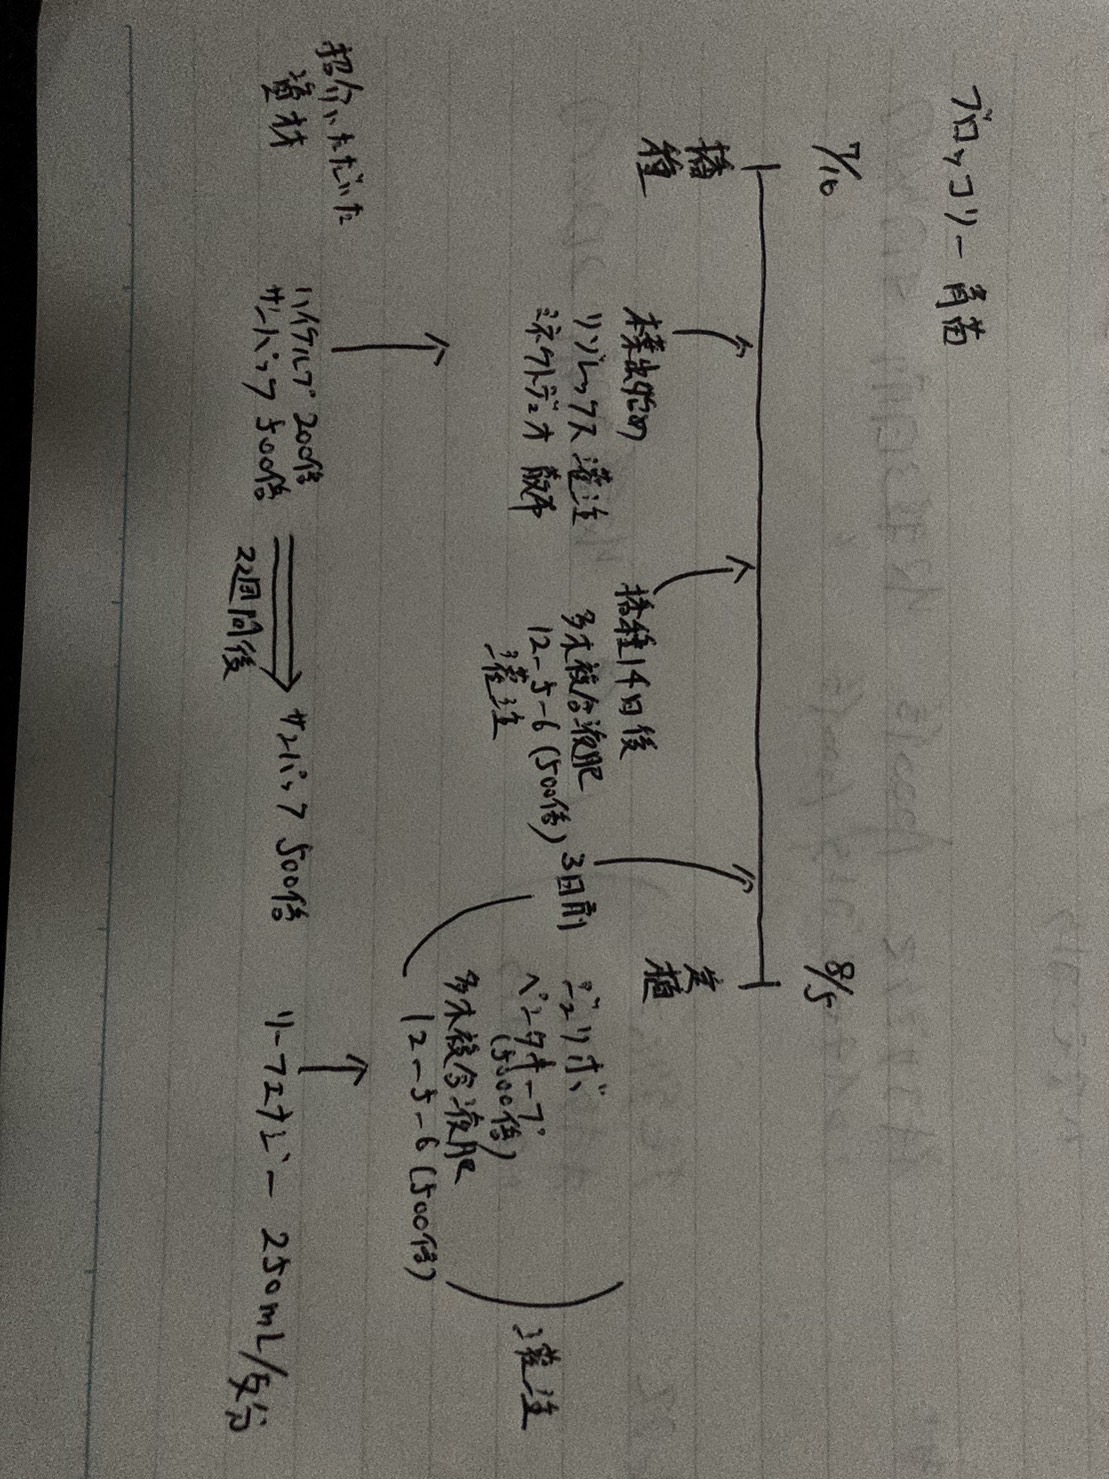 ブロッコリー育苗
7/10
8/5
播種
定植
様出始め
リゾレックス灌注
ミネクトデュオ散布
播種14日後
多木複合液肥
12-5-6(500倍)
灌注
3日前
ジュリボ
ベンタキープ
(5000倍)
多木複合液肥
12-5-6(500倍)
灌注
紹介いただいた
資材
ハイケルプ 200倍
サンバック 500倍
2週間後
サンバック 500倍
リーフエナジー 250mL/反分